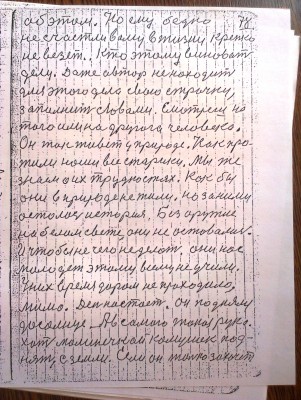 об этом. Но ему бедно 78
не счастливому в жизни крепко
не везет. Кто этому виноват
дели. Даже автор не находит
для этого дела свою строчку,
заполнит словами. Смотрен на
того или на другого человека.
Он так товет у природе. Как про-
жили наши все старики. Мы же
знаем о их трудностях. Как бы
они в природе не жили, но за ними
осталось история. Без оружие
на белом свете они не оставались.
И чтобы не чего не делот, они нас
молодет этому всему не учили.
У них время даром не проходило,
мимо. Ден настает. Он поднялн
до солнце. А в самого тонос рука.
Хот маленичкой камушек под-
нять с земли. Если он только захочет